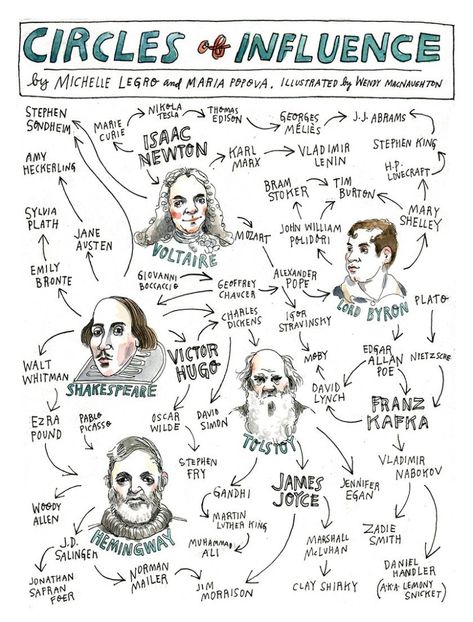 CIRCLES of INFLUENCE
by MICHELLE LEGRO and MARIA POPOVA. ILLUSTRATED by WENDY MACNAUGHTON
STEPHEN
SONDHEIM
MARIE
CURIE
NIKOLA
TESLA
THOMAS
EDISON
GEORGES
MÉLIÈS
J.J. ABRAMS
ISAAC
NEWTON
STEPHEN KING
AMY
HECKERLING
KARL
MARX
VLADIMIR
LENIN
H.P.
LOVECRAFT
BRAM
STOKER
TIM
BURTON
SYLVIA
PLATH
JANE
AUSTEN
MOZART
JOHN WILLIAM
POLIDORI
MARY
SHELLEY
VOLTAIRE
EMILY
BRONTE
GIOVANNI
BOCCACCIO
GEOFFREY
CHAUCER
ALEXANDER
POPE
LORD BYRON
PLATO
CHARLES
DICKENS
IGOR
STRAVINSKY
WALT
WHITMAN
SHAKESPEARE
VICTOR
HUGO
MOBY
EDGAR
ALLAN
POE
NIETZSCHE
DAVID
LYNCH
FRANZ
KAFKA
EZRA
POUND
PABLO
PICASSO
OSCAR
WILDE
DAVID
SIMON
TOLSTOY
STEPHEN
FRY
VLADIMIR
NABOKOV
WOODY
ALLEN
HEMINGWAY
GANDHI
JAMES
JOYCE
JENNIFER
EGAN
MARTIN
LUTHER KING
ZADIE
SMITH
J.D.
SALINGER
MUHAMMAD
ALI
MARSHALL
MCLUHAN
JONATHAN
SAFRAN
FOER
NORMAN
MAILER
JIM
MORRISON
CLAY SHIRKY
DANIEL
HANDLER
(A.K.A. LEMONY
SNICKET)